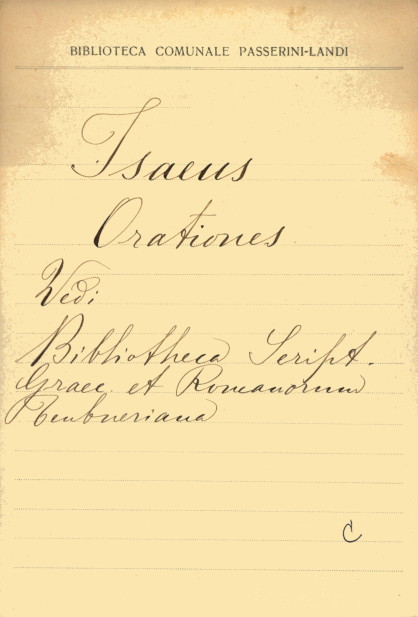 BIBLIOTECA COMUNALE PASSERINI-LANDI
Isaeus
Orationes
Vedi
Bibliotheca Script.
Graec. et Romanorum
Teubneriana
C